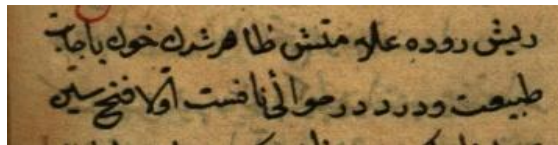 ریش روده علامتش ظاهر شدن خون باجابت
طبیعت و درد در حوالی نافست اولا فتح